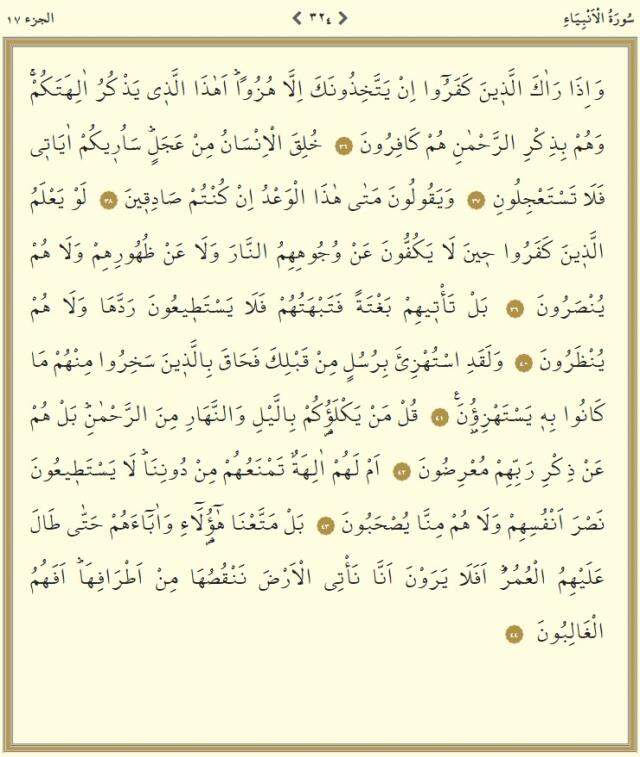 سُورَةُ الْاَنْبِيَاءِ ٣٢٤ الجزء ١٧
وَاِذَا رَاٰكَ الَّذ۪ينَ كَفَرُٓوا اِنْ يَتَّخِذُونَكَ اِلَّا هُزُواًۜ اَهٰذَا الَّذ۪ي يَذْكُرُ اٰلِهَتَكُمْۚ
وَهُمْ بِذِكْرِ الرَّحْمٰنِ هُمْ كَافِرُونَ ٣٦ خُلِقَ الْاِنْسَانُ مِنْ عَجَلٍۜ سَاُر۪يكُمْ اٰيَات۪ي
فَلَا تَسْتَعْجِلُونِ ٣٧ وَيَقُولُونَ مَتٰى هٰذَا الْوَعْدُ اِنْ كُنْتُمْ صَادِق۪ينَ ٣٨ لَوْ يَعْلَمُ
الَّذ۪ينَ كَفَرُوا ح۪ينَ لَا يَكُفُّونَ عَنْ وُجُوهِهِمُ النَّارَ وَلَا عَنْ ظُهُورِهِمْ وَلَا هُمْ
يُنْصَرُونَ ٣٩ بَلْ تَأْت۪يهِمْ بَغْتَةً فَتَبْهَتُهُمْ فَلَا يَسْتَط۪يعُونَ رَدَّهَا وَلَا هُمْ
يُنْظَرُونَ ٤٠ وَلَقَدِ اسْتُهْزِئَ بِرُسُلٍ مِنْ قَبْلِكَ فَحَاقَ بِالَّذ۪ينَ سَخِرُوا مِنْهُمْ مَا
كَانُوا بِه۪ يَسْتَهْزِؤُ۫نَ۟ ٤١ قُلْ مَنْ يَكْلَؤُ۬كُمْ بِالَّيْلِ وَالنَّهَارِ مِنَ الرَّحْمٰنِۜ بَلْ هُمْ
عَنْ ذِكْرِ رَبِّهِمْ مُعْرِضُونَ ٤٢ اَمْ لَهُمْ اٰلِهَةٌ تَمْنَعُهُمْ مِنْ دُونِنَاۜ لَا يَسْتَط۪يعُونَ
نَصْرَ اَنْفُسِهِمْ وَلَا هُمْ مِنَّا يُصْحَبُونَ ٤٣ بَلْ مَتَّعْنَا هٰٓؤُ۬لَٓاءِ وَاٰبَٓاءَهُمْ حَتّٰى طَالَ
عَلَيْهِمُ الْعُمُرُۜ اَفَلَا يَرَوْنَ اَنَّا نَأْتِي الْاَرْضَ نَنْقُصُهَا مِنْ اَطْرَافِهَاۜ اَفَهُمُ
الْغَالِبُونَ ٤٤